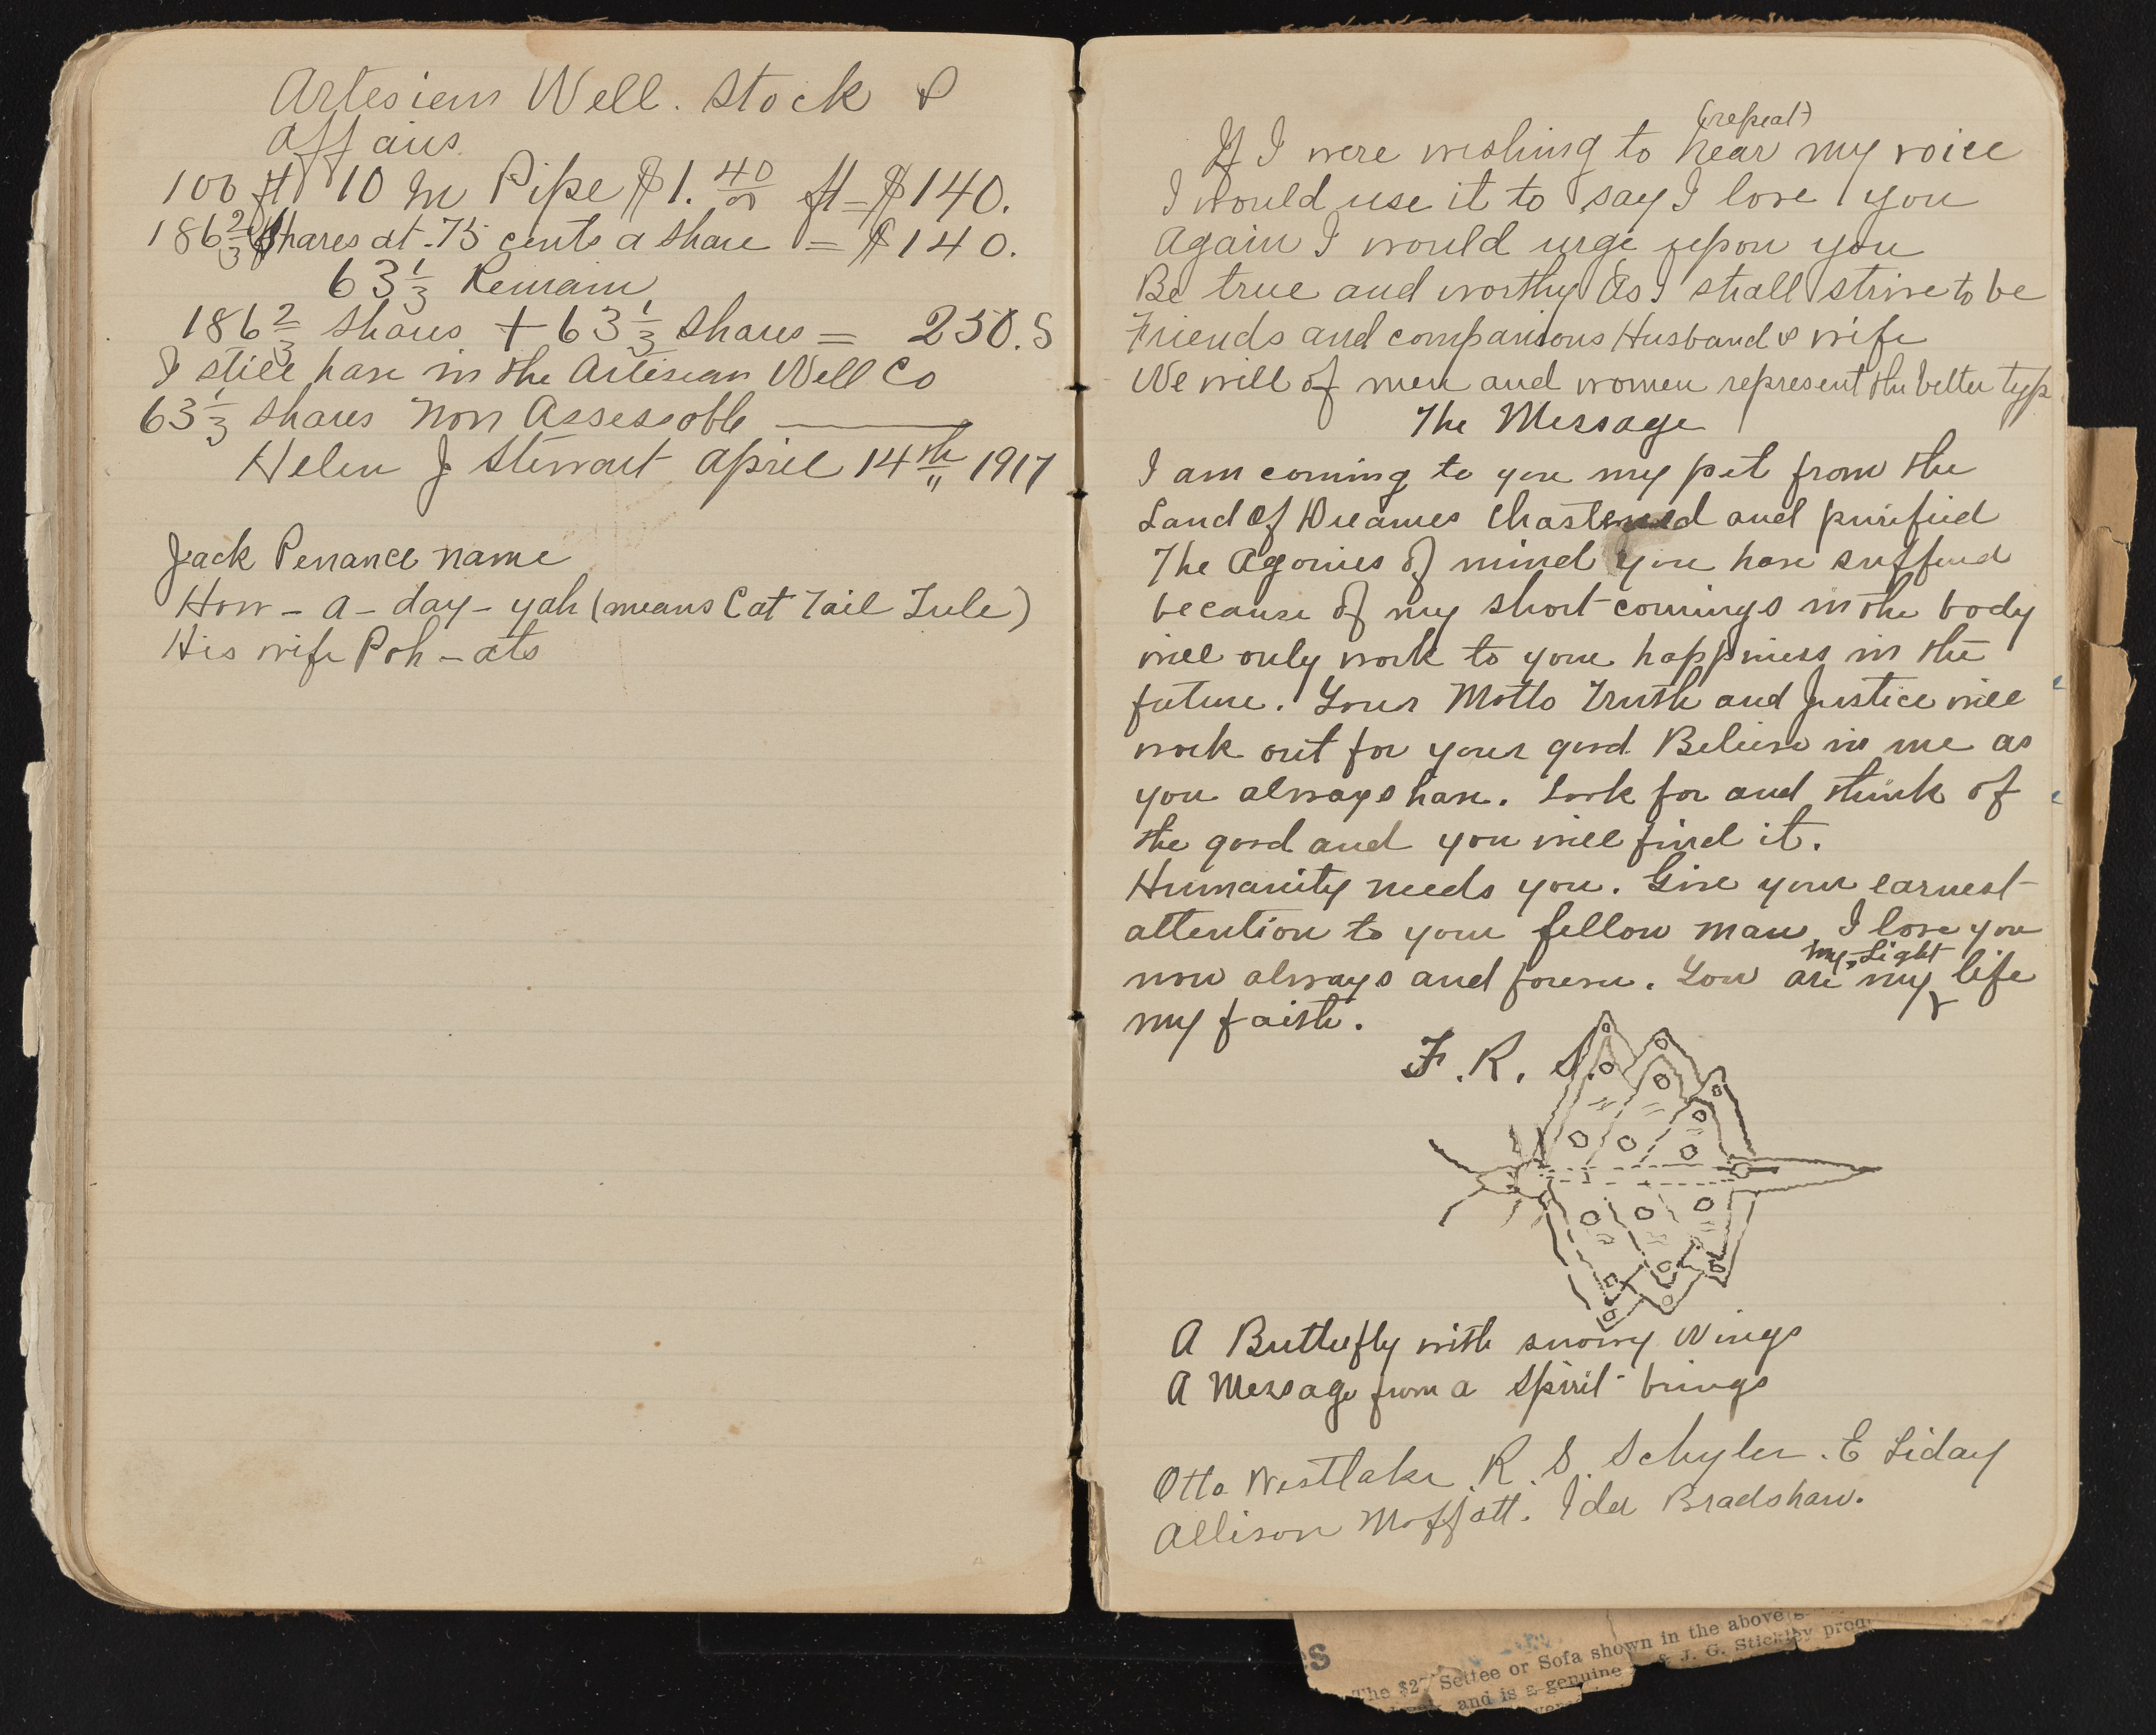 Artesian Well. Stock &
Affairs
100 ft 10 In Pipe $1. 40/00 ft = $140.
186 2/3 Shares at .75 cents a share = $140.
63 1/3 Remain
186 2/3 shares + 63 1/3 shares = 250. S
I still have in the Artesian Well Co
63 1/3 shares Non Assessable
Helen J Stewart April 14th 1917
Jack Penance name
How - a - day - yah (means Cat Tail Tule)
His wife Poh - ats
(repeat)
If I were wishing to hear my voice
I would use it to say I love you
Again I would urge upon you
Be true and worthy As I shall strive to be
Friends and companions Husband & wife
We will of men and women represent the better typ
The Message
I am coming to you my pet from the
Land Of Dreames Chastened and purified
The Agonies of mind you have suffered
because of my short comings in the body
will only work to your happiness in the
future. Your Motto Truth and Justice will
work out for your good Believe in me as
you always have. Look for and think of
the good and you will find it.
Humanity needs you. Give your earnest
attention to your fellow man I love you
my Light
now always and forever. You are my life
&
my faith.
F. R. S.
A Butterfly with snowy Wings
A Message from a Spirit brings
Otto Westlake. R. S. Schyler. E Liday
Allison Moffatt. Ider Bradshaw.
The $27 Settee or Sofa shown in the above
and is a genuine & J. G. Stickley